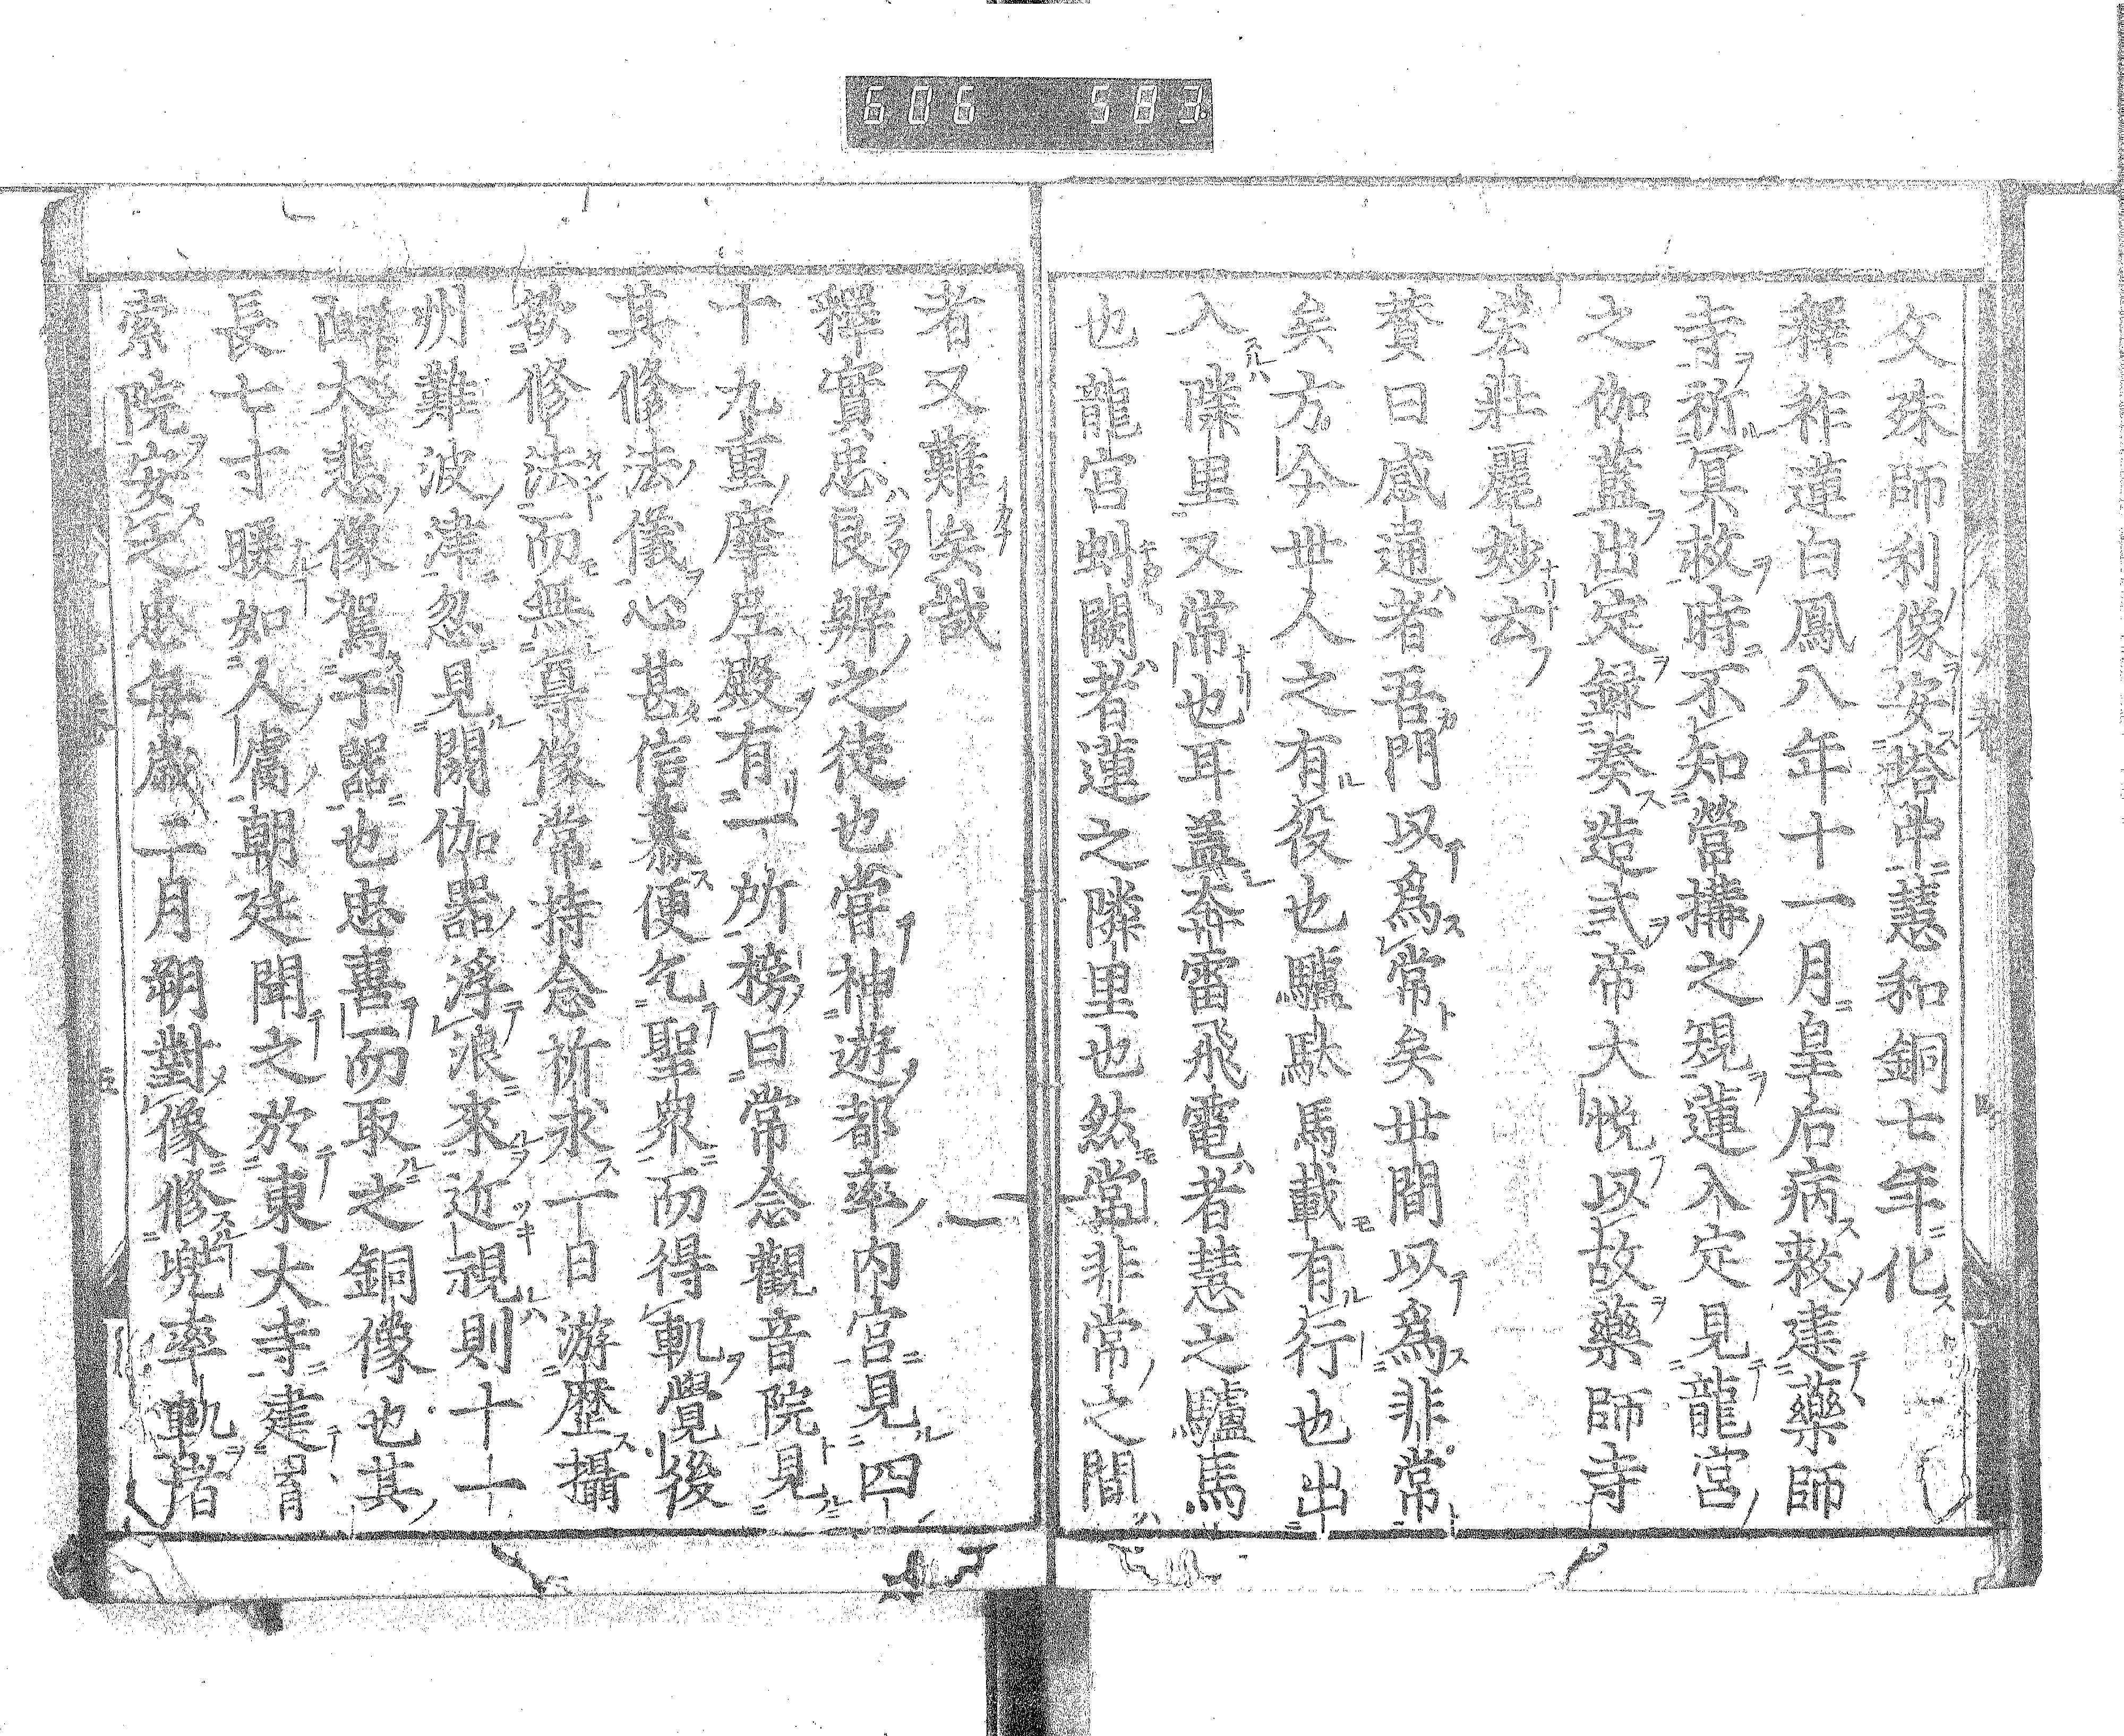 606 583
文殊師利像安塔中慧和銅七年化
釋祚蓮白鳳八年十一月皇后病救建藥師
寺祈冥救時不知營搆之規蓮入定見龍宮
之伽藍出定錄奏造式帝大悅以故藥師寺
宏壯麗妙云
賛曰感通者吾門以爲常矣世間以爲非常
矣方今世人之有役也驢馱馬載有行也出
入隣里又常也耳蓋奔雷飛電者慧之驢馬
也龍宮蚪闕者蓮之隣里也然常非常之間
者又難矣哉
釋實忠良辨之徒也甞神遊都率內宮見四
十九重摩尼殿有一所榜曰常念觀音院見
其修法儀心甚信慕便乞聖衆而得軌覺後
欲修法而無尊像常持念祈求一日游歷攝
州難波津忽見閼伽器浮浪來近視則十一
面大悲像駕于器也忠喜而取之銅像也其
長七寸暖如人膚朝廷聞之於東大寺建羂
索院安之忠每歲二月朔對像修兜率軌者